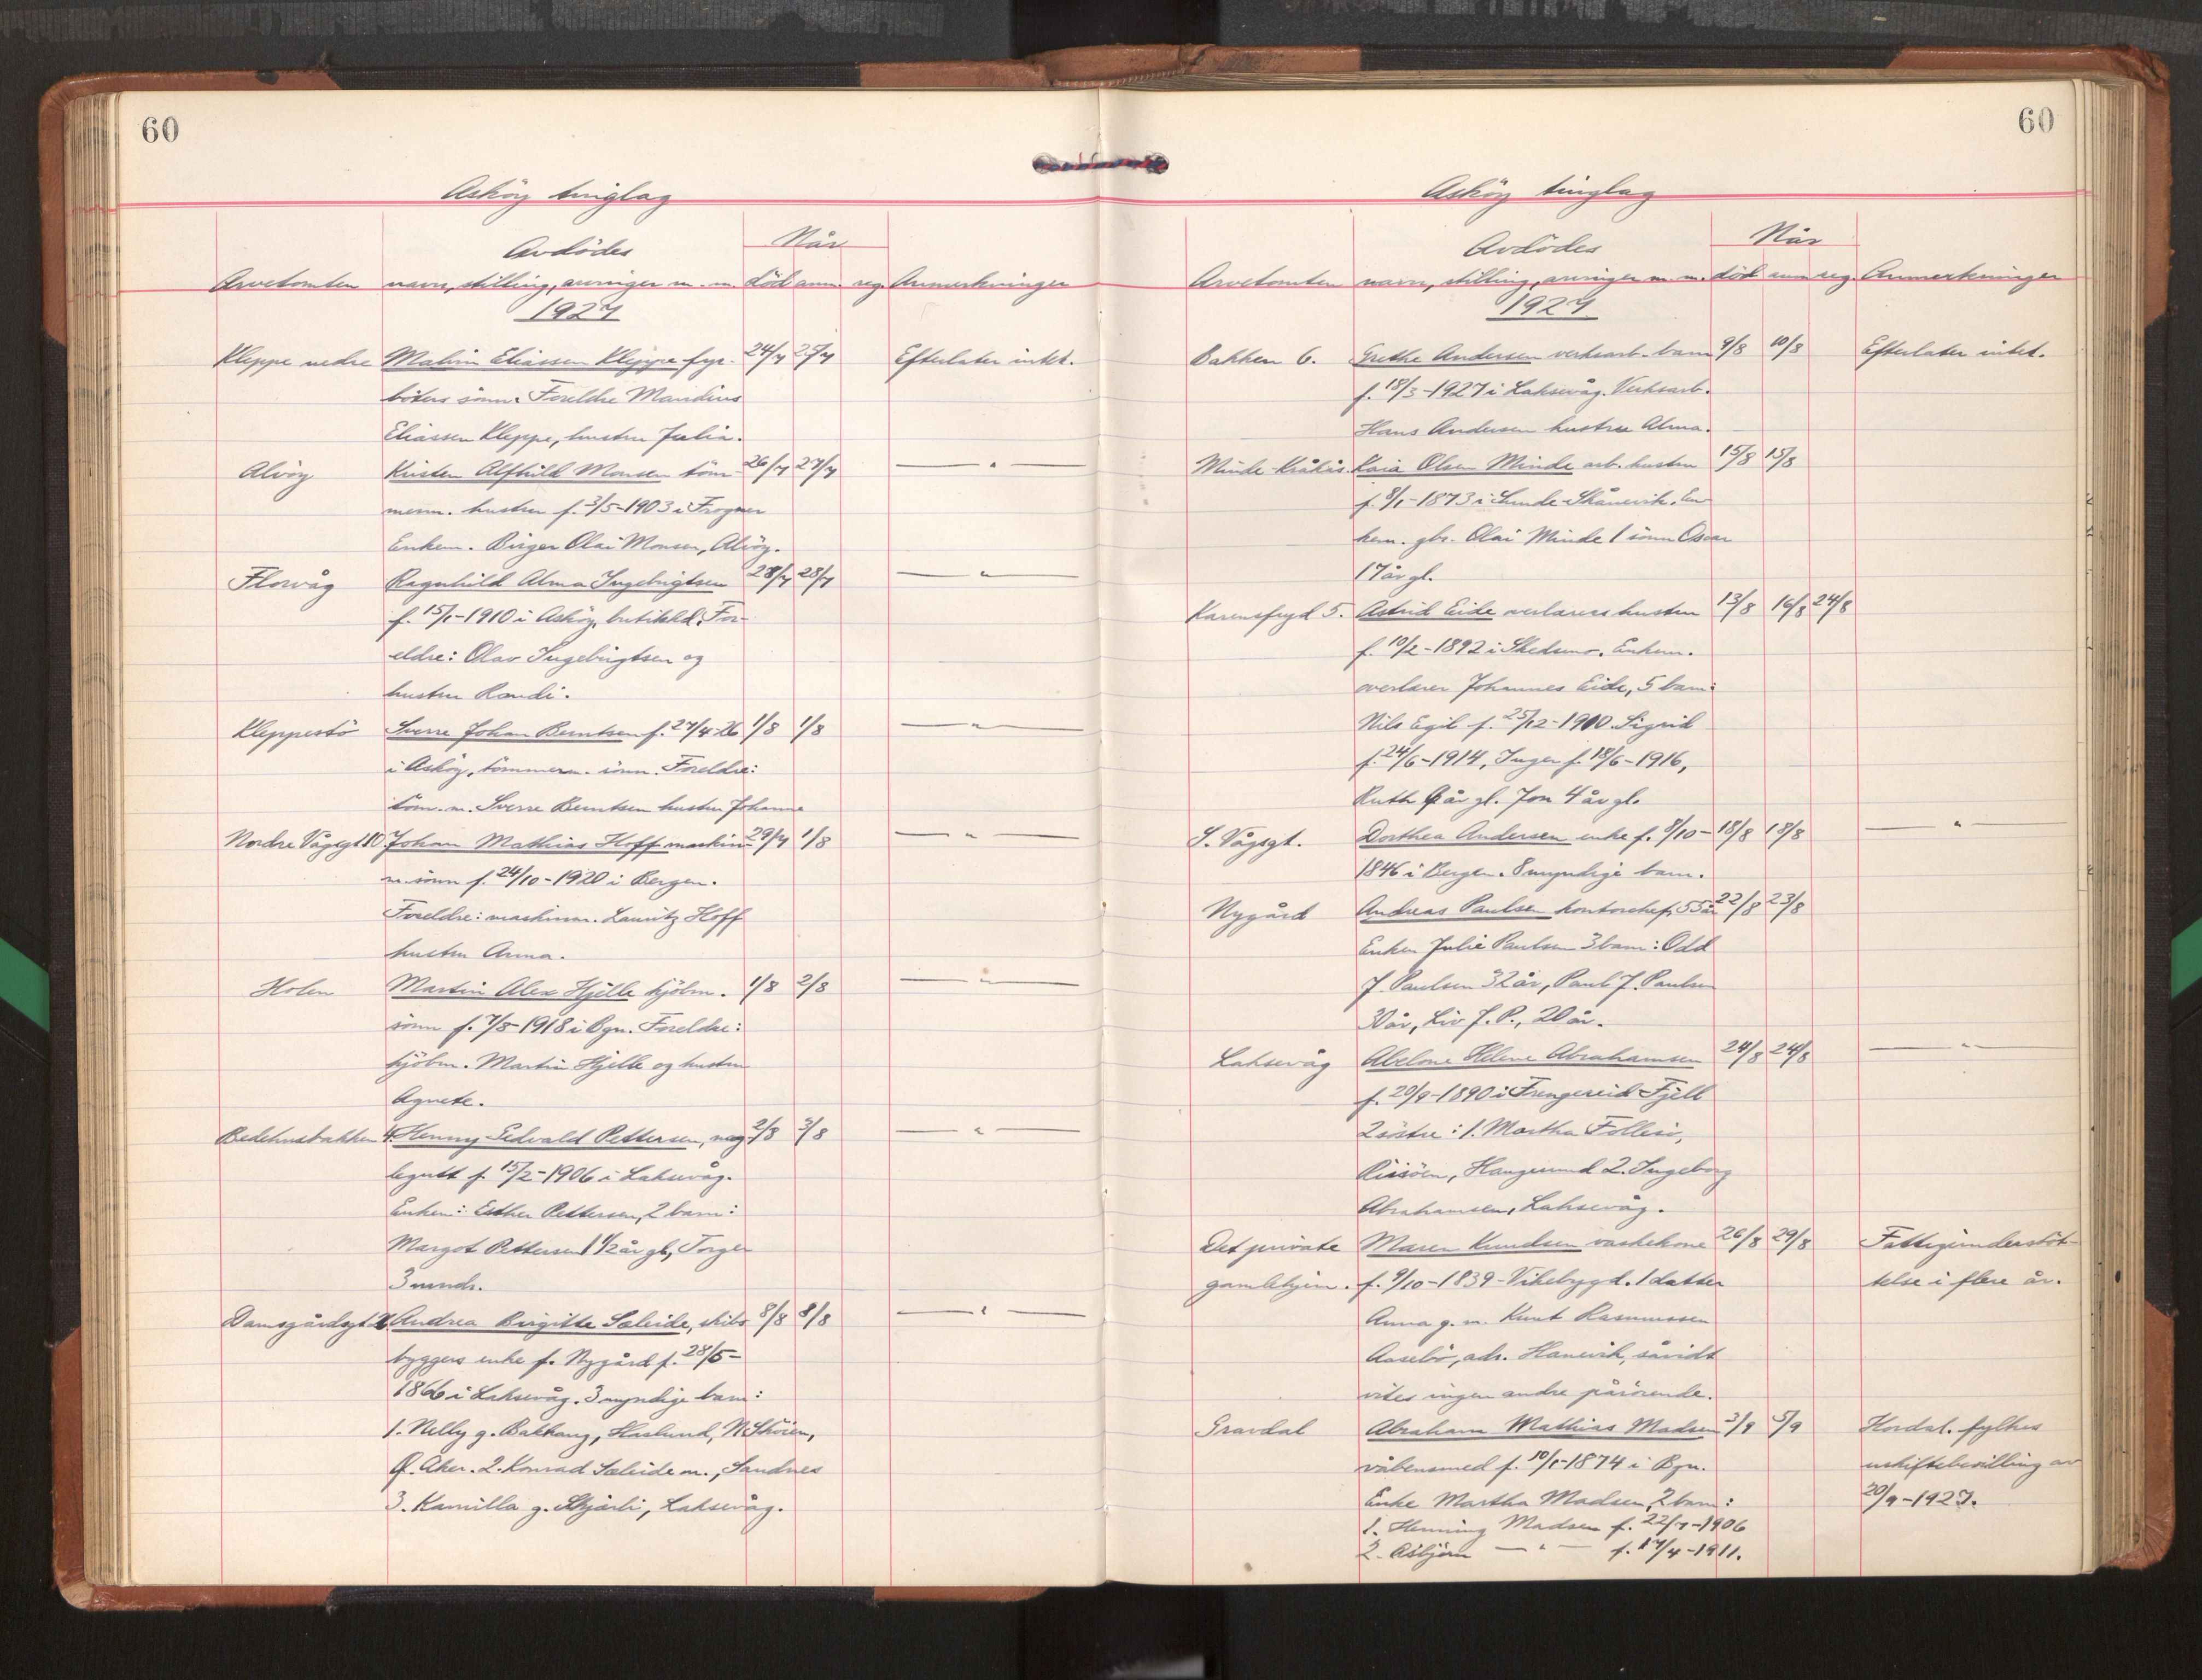 60
Askøy tinglag
Når
Avdödes
Arvetomten navn, stilling, arvinger m. m. död anm. reg. Anmerkninger
1927
Kleppe nedre Malvin Eliassen Kleppe fyr- 24/7 25/7 Efterlater intet.
böters sönn. Foreldre Mandius
Eliassen Kleppe, hustru Julia.
Alvöy Kirsten Alfhild Monsen töm- 26/7 27/7 — " —
merm. hustru f. 3/5-1903 i Frogner
Enkem. Birger Olai Monsen, Alvöy.
Florvåg Ragnhild Alma Ingebrigtsen 28/7 28/7 — " —
f. 15/1-1910 i Asköy, butikkd. For-
eldre: Olav Ingebrigtsen og
hustru Randi.
Kleppestö Sverre Johan Berntsen f. 27/4-26 1/8 1/8 — " —
i Asköy, tömmerm. sönn. Foreldre:
töm. m. Sverre Berntsen hustru Johanne
Nordre Vågsgt 10 Johan Mathias Hoff maskin- 29/7 1/8 — " —
m. sönn f. 24/10-1920 i Bergen.
Foreldre: maskinm. Lauritz Hoff
hustru Anna.
Holen Martin Alex Hjelle kjölm. 1/8 2/8 — " —
sönn f. 7/8-1918 i Bgn. Foreldre:
kjölm. Martin Hjelle og hustru
Agnete.
Bedehusbakken 4. Henny Edvald Pettersen, nag- 2/8 3/8 — " —
legutt f. 15/2-1906 i Laksevåg.
Enken: Esther Pettersen, 2 barn:
Margot Pettersen 1 1/2 år gl, Torger
3 mndr.
Damsgårdsgt Andrea Birgitte Sæleide, skibs 8/8 8/8 — " —
byggers enke f. Nygård f. 28/5-
1866 i Laksevåg. 3 myndige barn:
1. Nelly g. Bakhaug, Haslund, N. Skøien,
Ø. Aker. 2. Konrad Sæleide m., Sandnes
3. Kamilla g. Skjærli, Laksevåg.
60
Asköy tinglag
Når
Avdödes
Arvetomten navn, stilling, arvinger m. m. död anm reg. Anmerkninger
1927
Bakken 6. Grethe Andersen verksarb. barn 9/8 10/8 Efterlater intet.
f. 18/3-1927 i Laksevåg. Verksarb.
Hans Andersen hustru Alma.
Minde Kråkås. Kaia Olsen Minde arb. hustru 15/8 15/8
f. 8/1-1873 i Sunde-Skånevik. En-
kem. gbr. Olai Minde 1 sönn Oscar
17 år gl.
Karensfryd 5. Astrid Eide overlærers hustru 13/8 16/8 24/8
f. 10/2-1892 i Skedsmo. Enkem.
overlærer Johannes Eide, 5 barn:
Nils Egil f. 25/12-1910. Sigrid
f. 24/6-1914, Inger f. 18/6-1916,
Ruth 9 år gl. Jon 4 år gl.
S. Vågsgt. Dorthea Andersen enke f. 8/10- 18/8 18/8 — " —
1846 i Bergen. 8 myndige barn.
Nygård Andreas Paulsen kontorchef, 55 år 22/8 23/8
Enken Julie Paulsen 3 barn: Odd
J. Paulsen 32 år, Paul J. Paulsen
30 år, Liv J. P., 20 år.
Laksevåg Abelone Helene Abrahamsen 24/8 24/8 — " —
f. 20/9-1890 i Trengereid Fjell
2 söstre: 1. Martha Follesö,
Risöen, Haugesund 2. Ingeborg
Abrahamsen, Laksevåg.
Det private Maren Knudsen vaskekone 26/8 29/8 Fattigunderstöt-
gamlehjem. f. 9/10-1839-Vikebygd. 1 datter telse i flere år.
Anna g. m. Knut Rasmussen
Aaselö, adr. Hanevik, såvidt
vites ingen andre pårörende.
Gravdal Abraham Mathias Madsen 3/9 5/9 Hordal. fylkes
våbensmed f. 10/1-1874 i Bgn. uskiftebevilling av
Enke Martha Madsen, 2 barn: 20/9-1927.
1. Henning Madsen f. 22/7-1906
2. Asbjörn — " — f. 17/4-1911.